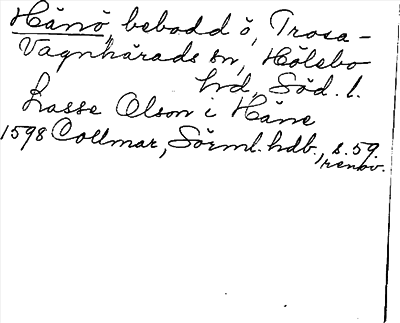 Hånö, bebodd ö, Trosa-
Vagnhärads sn, Hölebo
hd, Söd. l.
Lasse Olson i Håne
1598 Collmar, Sörml. hdb., s. 59.
renov.